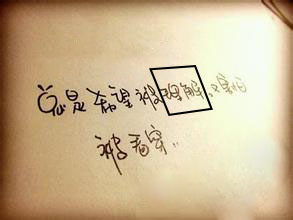 总是希望被理解,又害怕
被看穿..